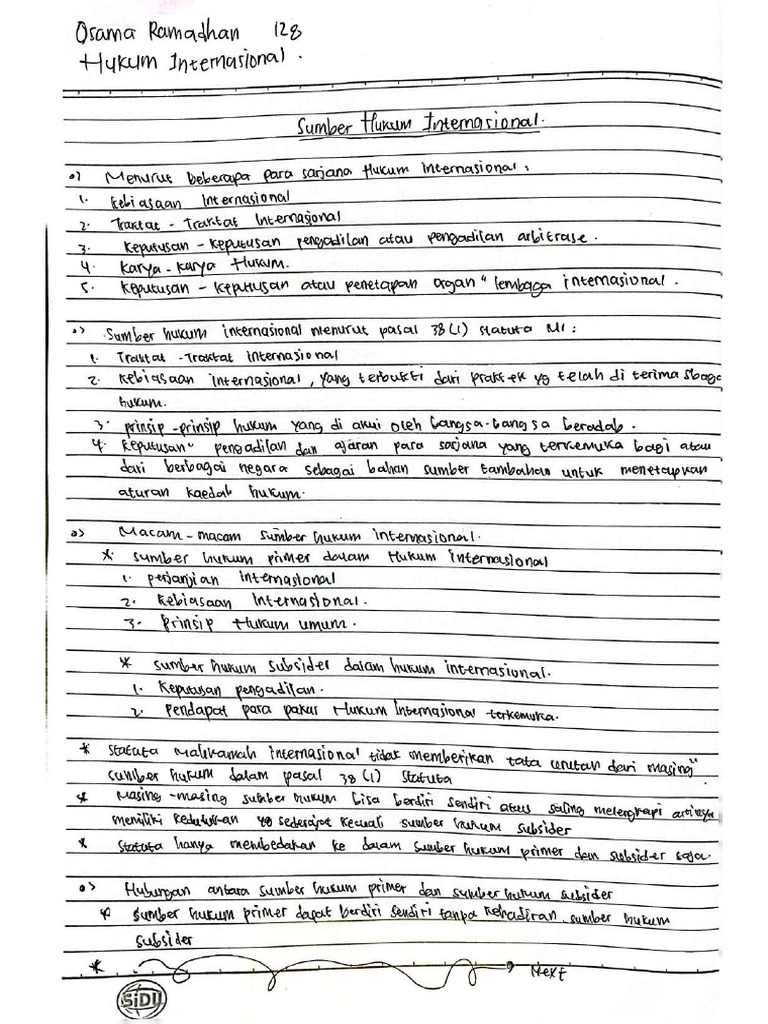 Osama Ramadhan 128
Hukum Internasional.
Sumber Hukum Internasional.
o) Menurut beberapa para sarjana Hukum internasional :
1. Kebiasaan Internasional
2. Traktat - Traktat Internasional
3. Keputusan - Keputusan pengadilan atau pengadilan arbitrase.
4. Karya - Karya Hukum.
5. Keputusan - Keputusan atau penetapan organ" lembaga internasional.
o) Sumber hukum internasional menurut pasal 38 (1) statuta MI :
1. Traktat - Traktat internasional
2. Kebiasaan internasional, yang terbukti dari praktek yg telah di terima sbage
hukum.
3. prinsip - prinsip hukum yang di akui oleh bangsa - bangsa beradab.
4. Keputusan" pengadilan dan ajaran para sarjana yang terkemuka bagi atau
dari berbagai negara sebagai bahan sumber tambahan untuk menetapkan
aturan kaedah hukum.
o) Macam - macam sumber hukum internasional.
* sumber hukum primer dalam Hukum internasional
1. perjanjian internasional
2. Kebiasaan Internasional.
3. Prinsip Hukum umum.
* sumber hukum subsider dalam hukum internasional.
1. Keputusan pengadilan.
2. Pendapat para pakur Hukum Internasional terkemuka.
* Statuta Mahkamah internasional tidak memberikan tata urutan dari masing"
sumber hukum dalam pasal 38 (1) Statuta
* Masing - masing sumber hukum bisa berdiri sendiri atau saling melengkapi artinya
memiliki kedudukan yg sederajat kecuali sumber hukum subsider
* Statuta hanya membedakan ke dalam sumber hukum primer dan subsider saja.
o) Hubungan antara sumber hukum primer dan sumber hukum subsider
* sumber hukum primer dapat berdiri sendiri tanpa kehadiran sumber hukum
subsider
* Next
SiDU